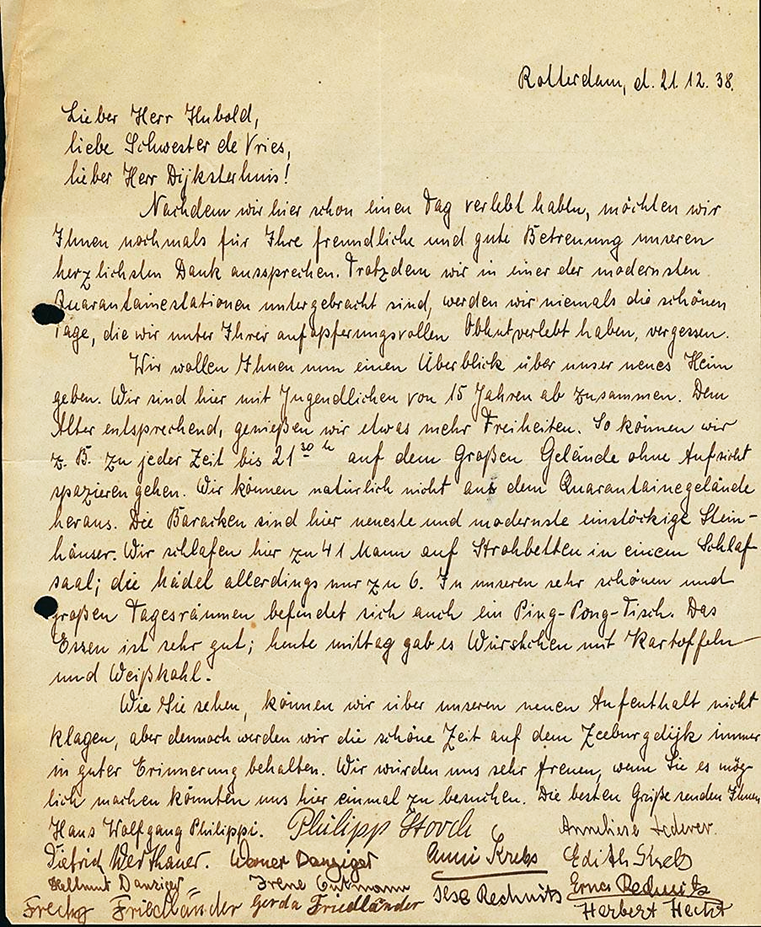 Rotterdam, d. 21.12.38.
Lieber Herr Hubold,
liebe Schwester de Vries,
lieber Herr Dijksterhuis!
Nachdem wir hier schon einen Tag verlebt haben, möchten wir
Ihnen nochmals für Ihre freundliche und gute Betreuung unseren
herzlichsten Dank aussprechen. Trotzdem wir in einer der modernsten
Quarantainestationen untergebracht sind, werden wir niemals die schönen
Tage, die wir unter Ihrer aufopferungsvollen Obhut verlebt haben, vergessen.
Wir wollen Ihnen nun einen Überblick über unser neues Heim
geben. Wir sind hier mit Jugendlichen von 15 Jahren ab zusammen. Dem
Alter entsprechend, genießen wir etwas mehr Freiheiten. So können wir
z. B. zu jeder Zeit bis 21 30 h auf dem Großen Gelände ohne Aufsicht
spazieren gehen. Wir können natürlich nicht aus dem Quarantainegelände
heraus. Die Baracken sind hier neueste und modernste einstöckige Stein-
häuser. Wir schlafen hier zu 41 Mann auf Strohbetten in einem Schlaf-
saal; die Mädel allerdings nur zu 6. In unseren sehr schönen und
großen Tagesräumen befindet sich auch ein Ping-Pong-Tisch. Das
Essen ist sehr gut; heute mittag gab es Würstchen mit Kartoffeln
und Weißkohl.
Wie Sie sehen, können wir über unseren neuen Aufenthalt nicht
klagen, aber dennoch werden wir die schöne Zeit auf dem Zeeburgdijk immer
in guter Erinnerung behalten. Wir würden uns sehr freuen, wenn Sie es mög-
lich machen könnten uns hier einmal zu besuchen. Die besten Grüße senden Ihnen
Hans Wolfgang Philippi. Philipp Anneliese Lederer.
Dietrich Werthauer. Werner Danziger Anni Krebs Edith Krebs
Hellmut Danziger Irene Gutmann Ilse Rechnitz Erner Rechnitz
Friedländer Gerda Friedländer Herbert Hecht